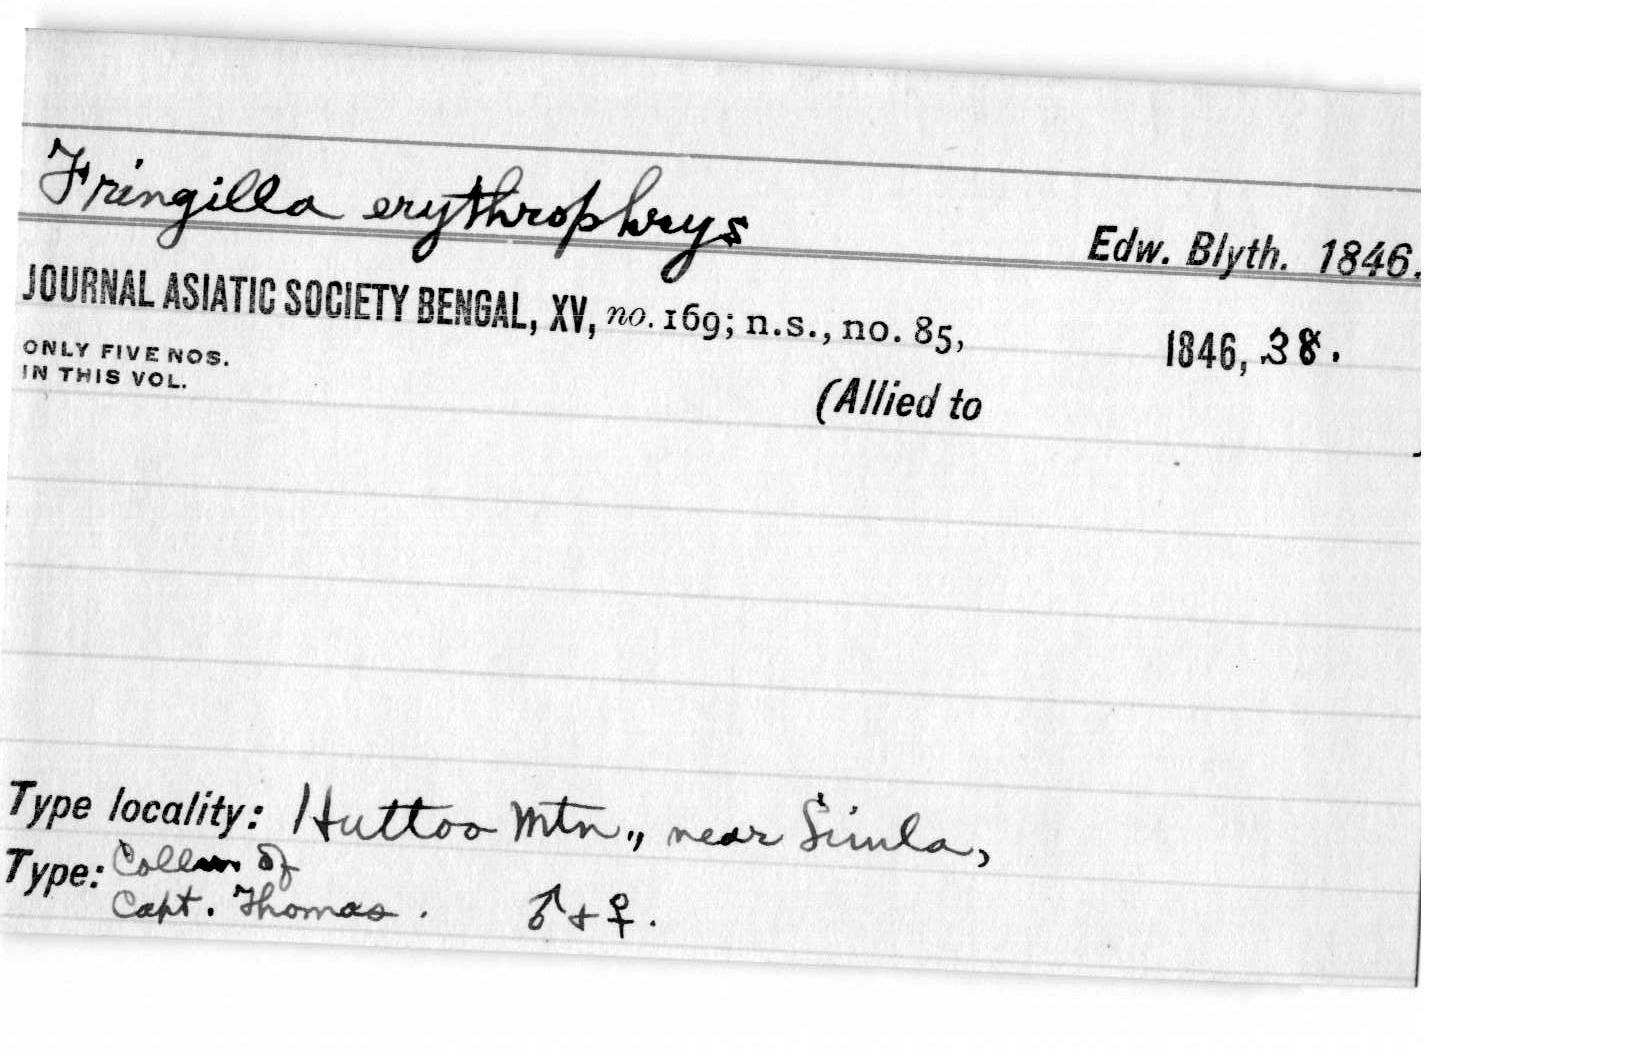 Fringilla erythrophrys Edw. Blyth. 1846.
JOURNAL ASIATIC SOCIETY BENGAL, XV, no. 169; n.s., no. 85, 1846, 38.
ONLY FIVE NOS.
IN THIS VOL.
(Allied to
Type locality: Huttoo Mtn., near Simla,
Type: Colln of
Capt. Thomas. ♂ + ♀.